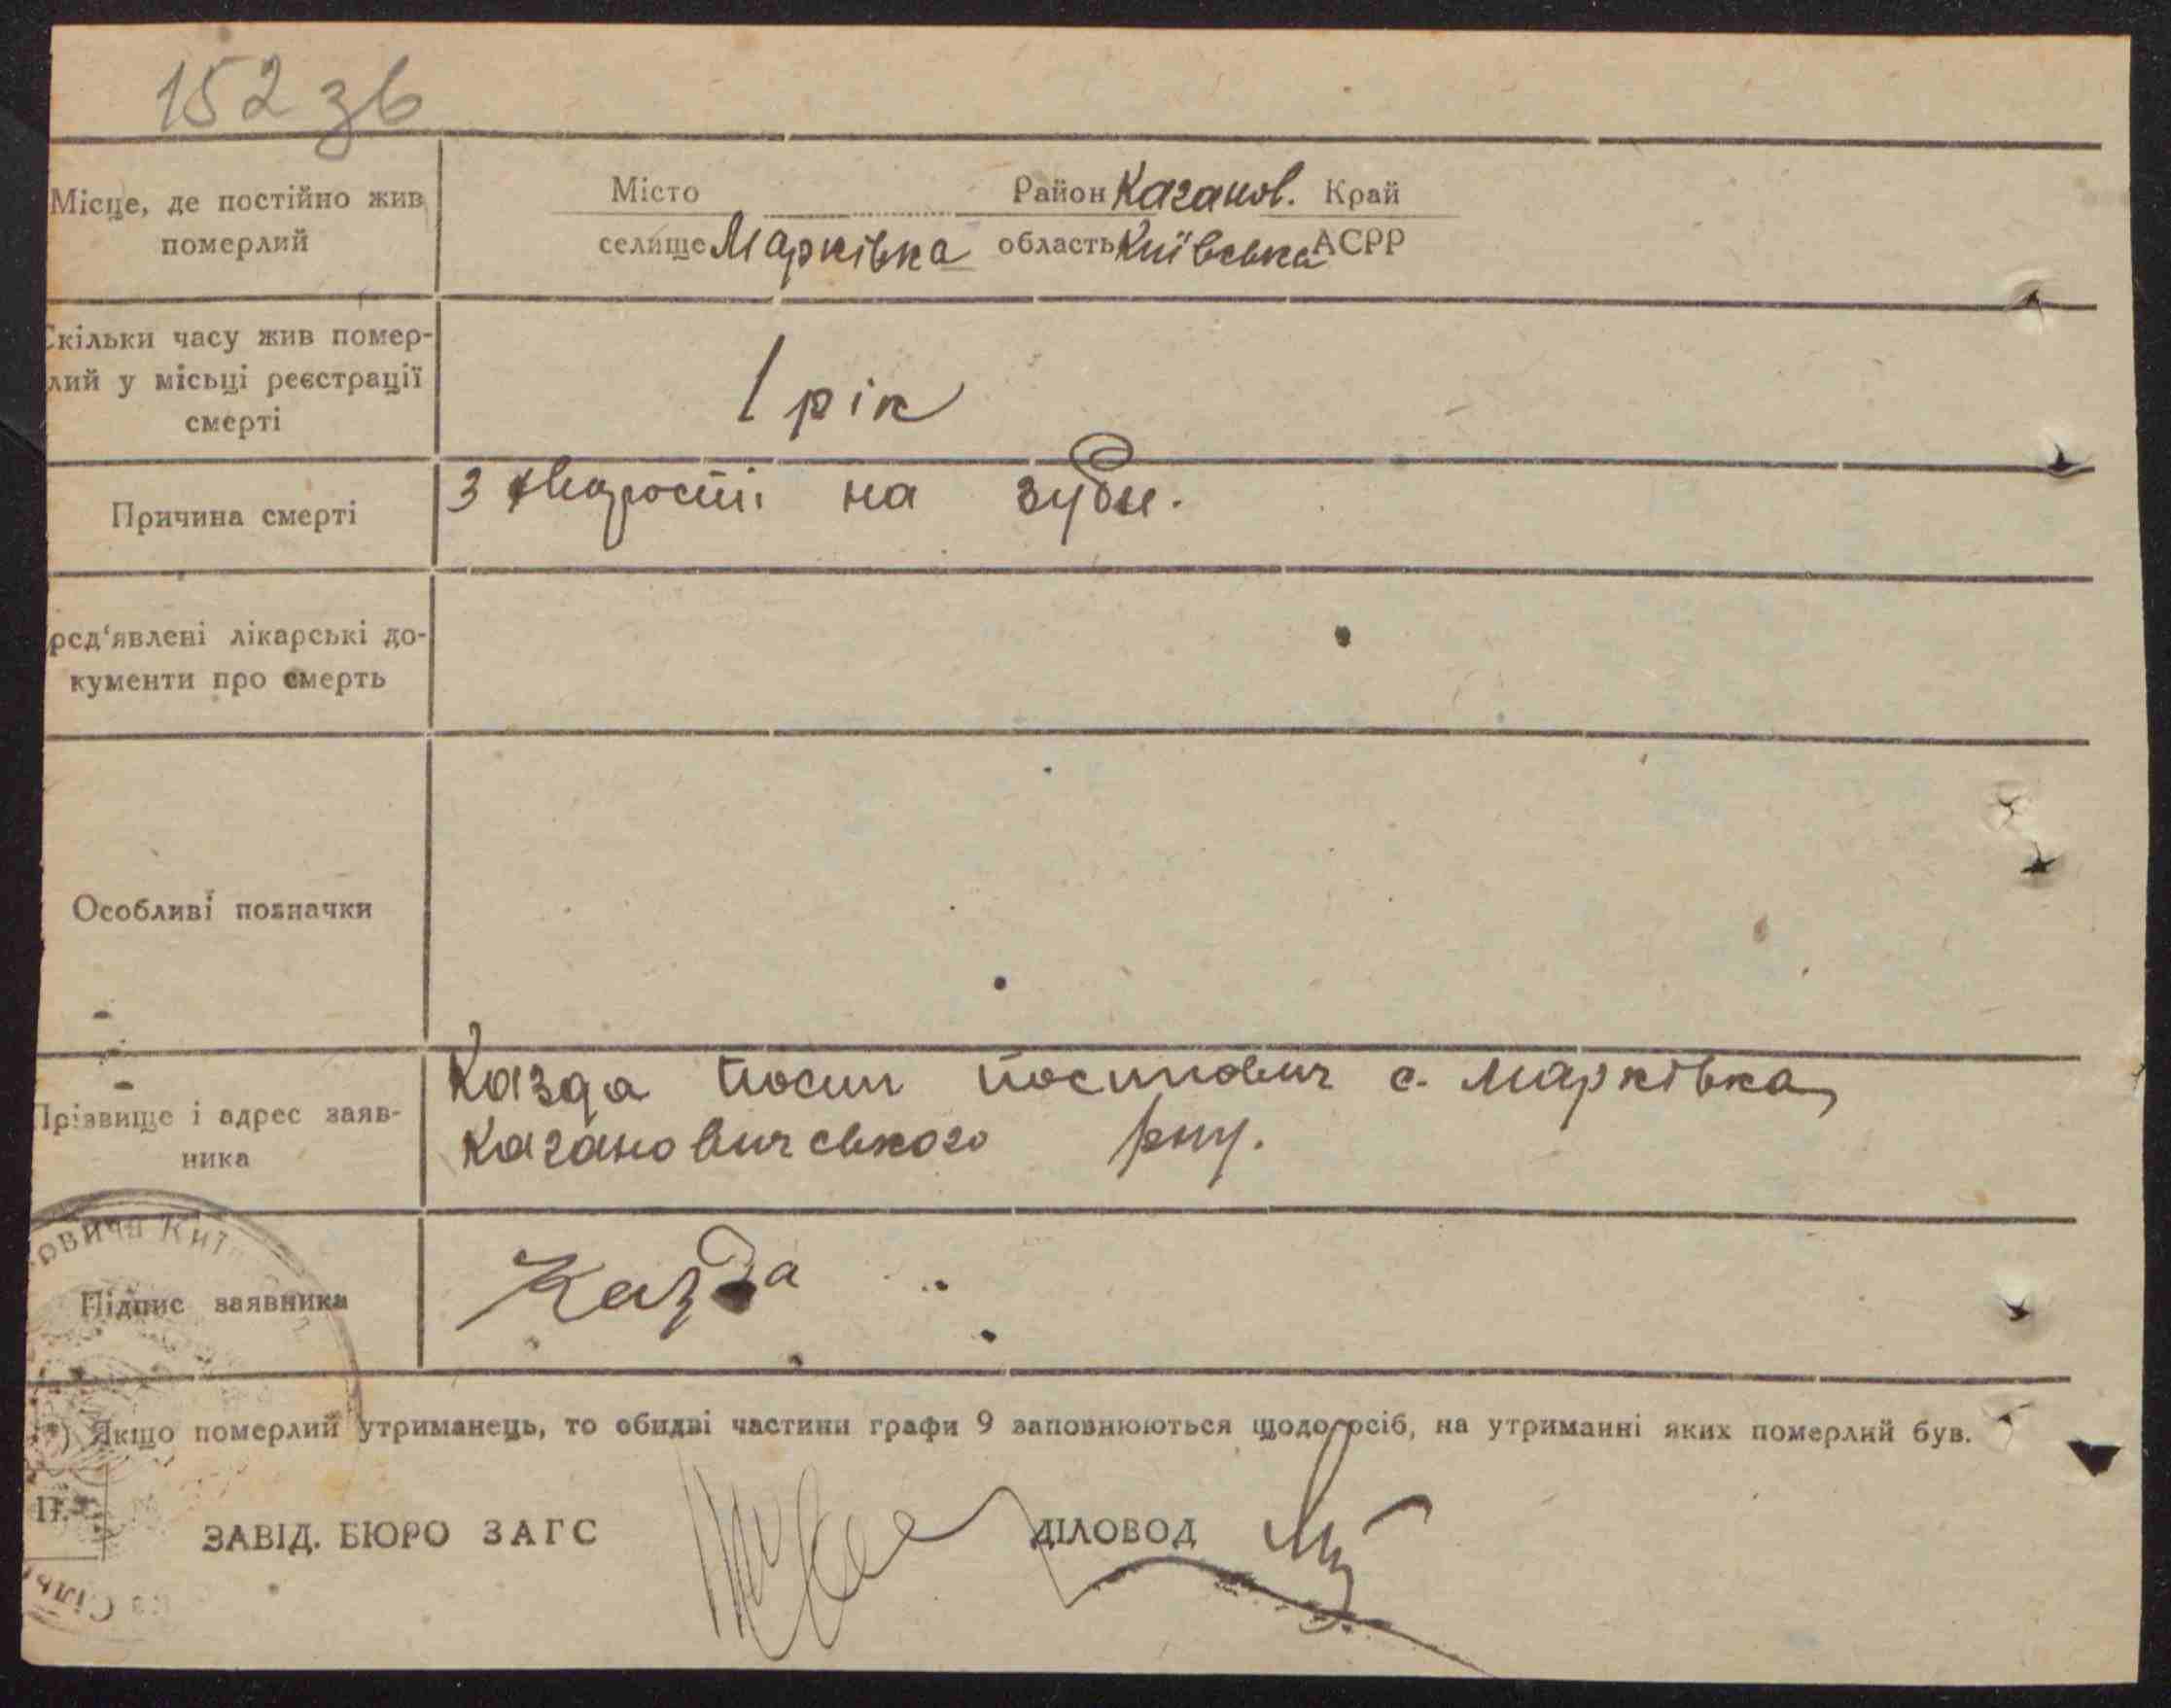 152 зв
Місце, де постійно жив
померлий
Місто Район Каганов. Край
селище Марківка область Київська АСРР
Скільки часу жив помер-
лий у місьці реєстрації
смерті
1 рік
Причина смерті
З хворості на зуби.
ред'явлені лікарські до-
кументи про смерть
Особливі позначки
Прізвище і адрес заяв-
ника
Казда Йосип Йосипович с. Марківка,
Кагановичського р-ну.
Підпис заявника
Казда
овича Київ
*) Якщо померлий утриманець, то обидві частини графи 9 заповнюються щодо осіб, на утриманні яких померлий був.
П.
ЗАВІД. БЮРО ЗАГС
ДІЛОВОД